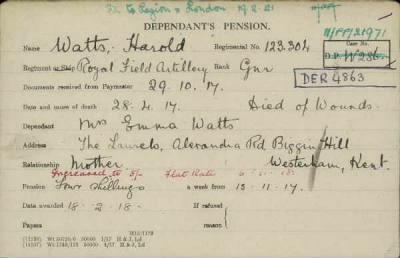 to Legion London 19.2.21
M/PP/21971
DEPENDANT'S PENSION.
Name Watts, Harold Regimental No. 123,304
Case No.
D.P. W286
Regiment or Ship Royal Field Artillery Rank Gnr
DER 4863
Documents received from Paymaster 29.10.17.
Date and cause of death 28.4.17. Died of Wounds.
Dependant Mrs Emma Watts
Address The Laurels, Alexandra Rd Biggin Hill
Relationship Mother Westerham, Kent.
Increased to 5/- Flat Rate
Pension Four shillings a week from 13.11.17.
Date awarded 18.2.18. If refused
Papers reason
Wt 30720/6 50000 1/17 H & J, Ld
50000 1/17 H & J, Ld